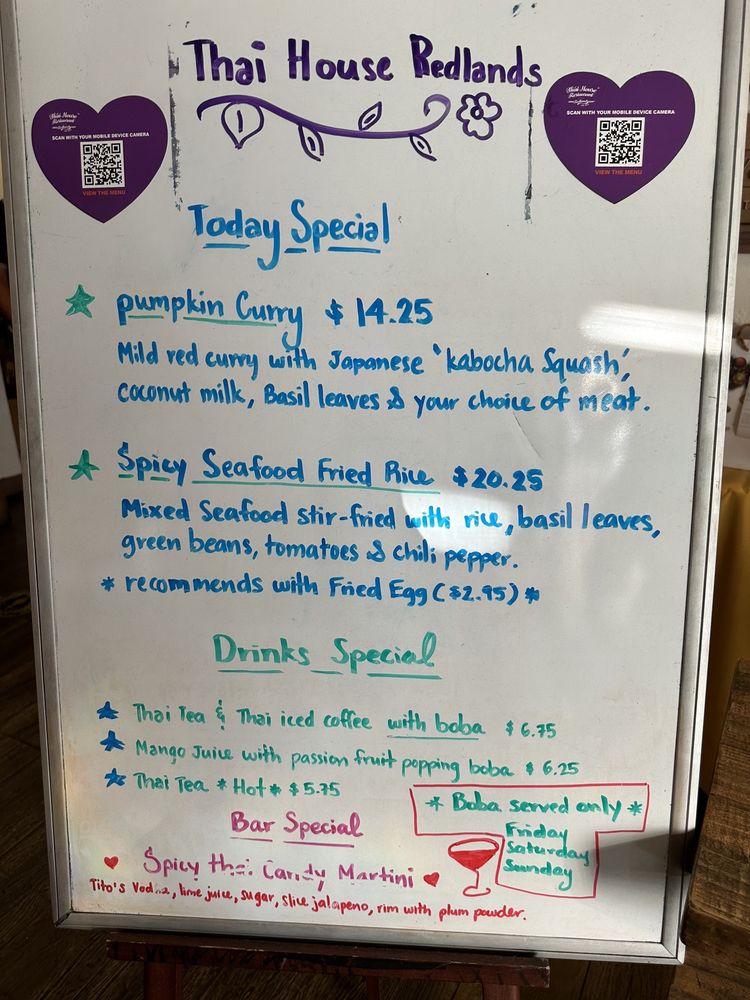 Thai House Redlands
Thai House
Restaurant
SCAN WITH YOUR MOBILE DEVICE CAMERA
VIEW THE MENU
Thai House
Restaurant
SCAN WITH YOUR MOBILE DEVICE CAMERA
VIEW THE MENU
Today Special
pumpkin Curry $ 14.25
Mild red curry with Japanese 'kabocha Squash',
coconut milk, Basil leaves & your choice of meat.
Spicy Seafood Fried Rice $20.25
Mixed Seafood stir-fried with rice, basil leaves,
green beans, tomatoes & chili pepper.
* recommends with Fried Egg ($2.95) *
Drinks Special
Thai Tea & Thai iced coffee with boba $ 6.75
Mango Juice with passion fruit popping boba $ 6.25
Thai Tea * Hot * $ 5.75
* Boba served only *
Friday
Saturday
Sunday
Bar Special
Spicy thai Candy Martini
Tito's Vodka, lime juice, sugar, slice jalapeno, rim with plum powder.